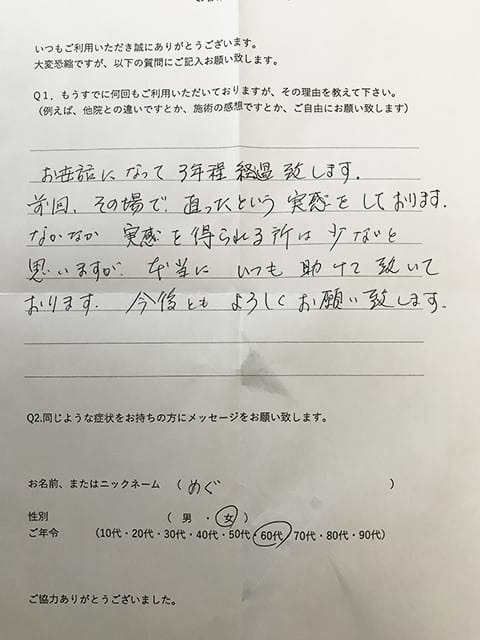 いつもご利用いただき誠にありがとうございます。
大変恐縮ですが、以下の質問にご記入お願い致します。
Q１．もうすでに何回もご利用いただいておりますが、その理由を教えて下さい。
（例えば、他院との違いですとか、施術の感想ですとか、ご自由にお願い致します）
お世話になって 3年程 経過 致します.
前回、その場で 直ったという 実感を しております.
なかなか 実感を 得られる 所は 少ないと
思いますが. 本当に いつも 助けて 致いて
おります. 今後とも よろしく お願い 致します.
Q2.同じような症状をお持ちの方にメッセージをお願い致します。
お名前、またはニックネーム （ めぐ ）
性別 （ 男 ・ 女 ）
ご年令 （10代・20代・30代・40代・50代・60代・70代・80代・90代）
ご協力ありがとうございました。